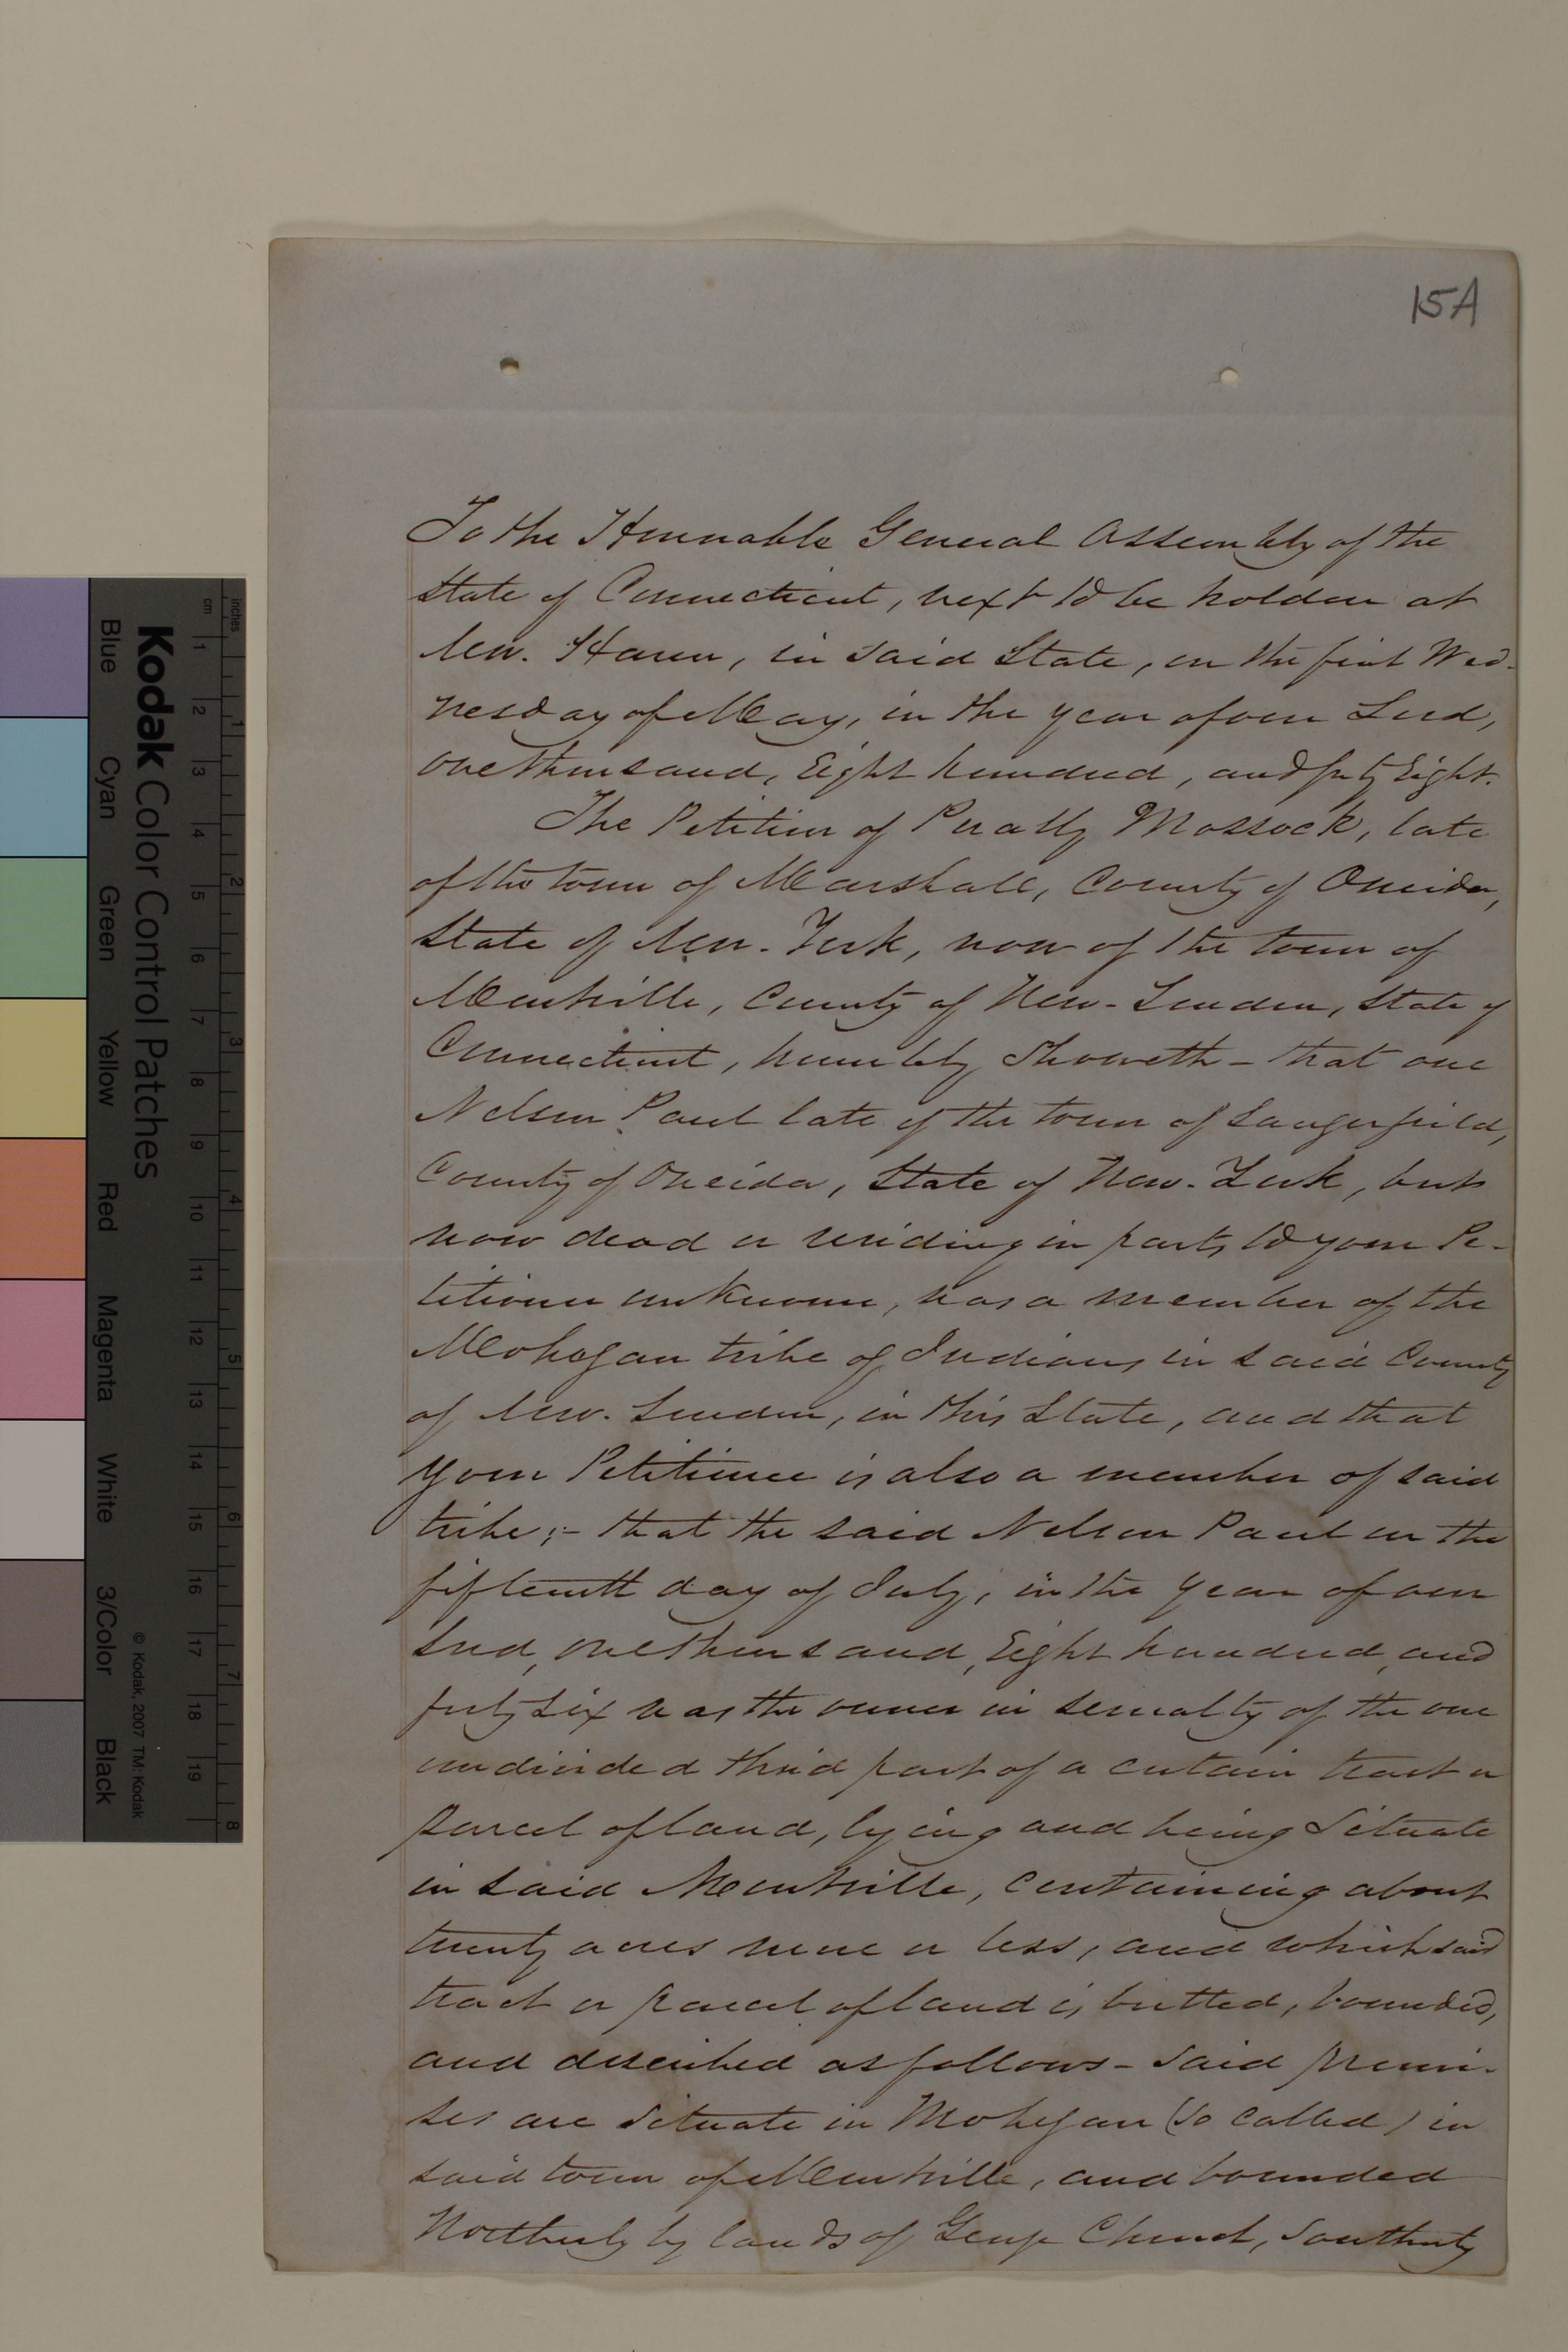 15A
To the Honorable General Assembly of the
State of Connecticut, next to be holden at
New-Haven, in said State, on the first Wed-
nesday of May, in the year of our Lord,
one thousand, Eight hundred, and forty Eight.
The Petition of Pually Mossock, late
of the town of Marshall, County of Oneida,
State of New-York, now of the town of
Montville, County of New-London, State of
Connecticut, humbly Showeth - that one
Nelson Paul late of the town of Sangerfield,
County of Oneida, State of New-York, but
now dead or residing in parts to your Pe-
titioner unknown, was a member of the
Mohegan tribe of Indians in said County
of New-London, in this State, and that
your Petitioner is also a member of said
tribe;- that the said Nelson Paul on the
fifteenth day of July, in the year of our
Lord, one thousand, Eight hundred, and
forty six was the owner in severalty of the one
undivided third part of a certain tract or
parcel of land, lying and being Situate
in said Montville, containing about
twenty acres more or less, and which said
tract or parcel of land is butted, bounded,
and described as follows - Said premi-
ses are Situate in Mohegan (so called) in
said town of Montville, and bounded
Northerly by lands of George Church, Southerly
inches
cm
1 2 3 4 5 6 7 8 9 10 11 12 13 14 15 16 17 18 19
1 2 3 4 5 6 7 8
Kodak Color Control Patches
© Kodak, 2007 TM: Kodak
Blue
Cyan
Green
Yellow
Red
Magenta
White
3/Color
Black